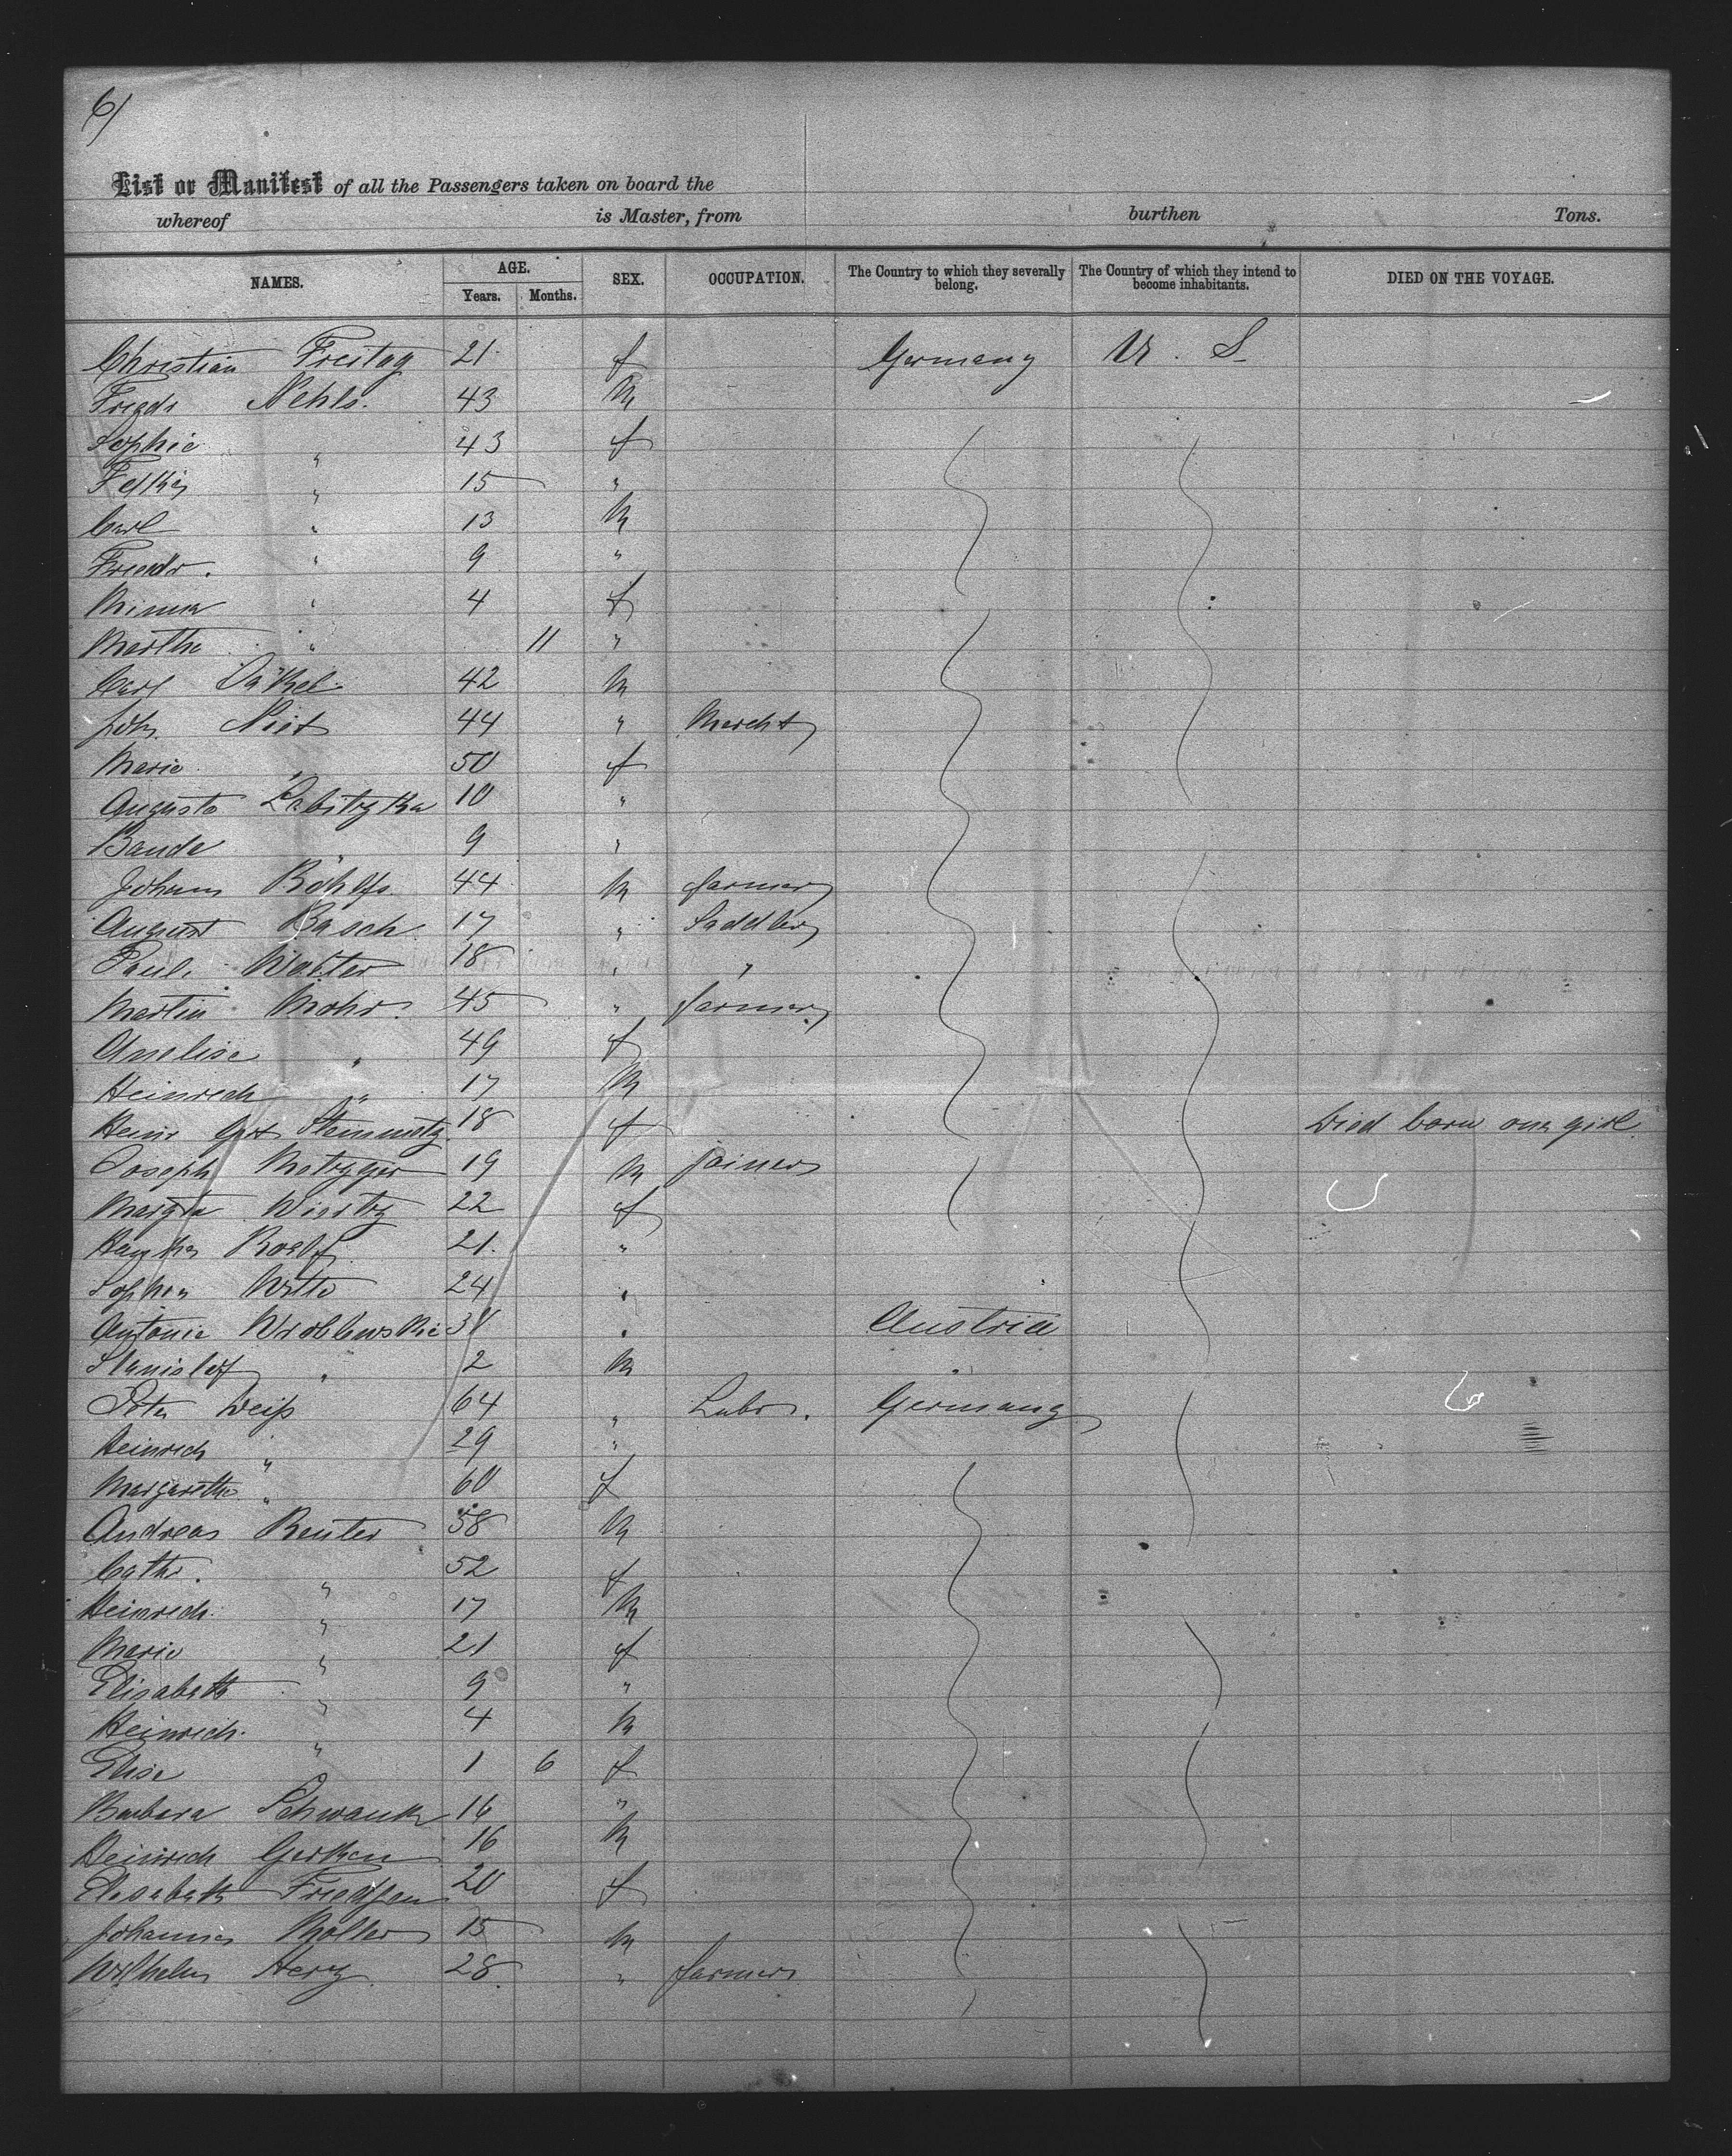 6/
List or Manifest of all the Passengers taken on board the
whereof is Master, from burthen Tons.
NAMES. AGE. Years. Months. SEX. OCCUPATION. The Country to which they severally belong. The Country of which they intend to become inhabitants. DIED ON THE VOYAGE.
Christian Freitag 21 f Germany U. S
Friedr Nehls. 43 M
Sophie " 43 f
" 15 "
Carl " 13 M
Friedr. " 9 "
Minna " 4 f
Martha " 11 "
Carl Däkel 42 M
Joh. Niet 44 " Mercht
Marie " 50 f
Auguste Labitzka 10 "
Bande " 9 "
Johann Röhlfs 44 M farmer
August Basch 17 " Saddler
Paul Wolter 18 " "
Martin Mohr. 45 " farmer
Anelise " 49 f
Heinrich " 17 M
Heinr Steinmetz 18 f Died born one girl
Joseph Metzger 19 M joiner
Margta 22 f
21. "
Sophie Witte 24 "
Antonie Wroblewskie 31 " Austria
Stanislaf " 2 M "
Peter Weiß 64 " Labr. Germany
Heinrich " 29 "
Margarethe " 60 f
Andreas Reuter 58 M
Cathr. " 52 f
Heinrich " 17 M
Marie " 21 f
Elisabeth " 9 "
Heinrich. " 4 M
Elise " 1 6 f
Barbara Schwank 16 "
Heinrich Gerken 16 M
Elisabeth 20 f
Johannes Möller 15 M
Wilhelm Herz 28 " farmer